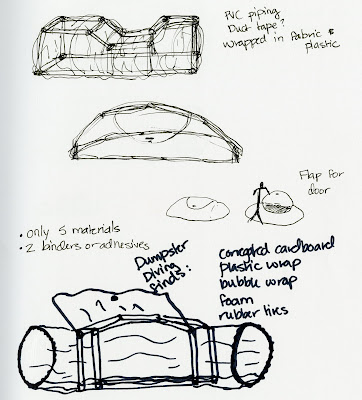 PVC piping
Duct tape?
Wrapped in fabric &
plastic
Flap for
door
• only 5 materials
• 2 binders or adhesives
Dumpster
Diving
finds:
corregated cardboard
plastic wrap
bubble wrap
foam
rubber tires